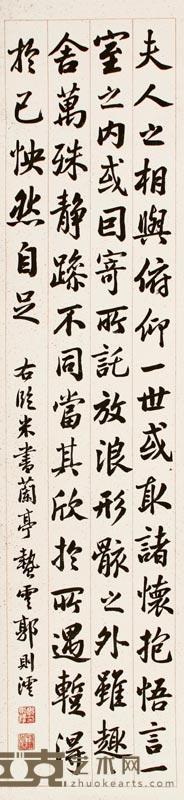 夫人之相與俯仰一世或取諸懷抱悟言一
室之内或因寄所託放浪形骸之外雖趣
舍萬殊静躁不同當其欣於所遇暫得
於己怏然自足 右臨米書蘭亭 蟄雲郭則澐
www.zhuokearts.com